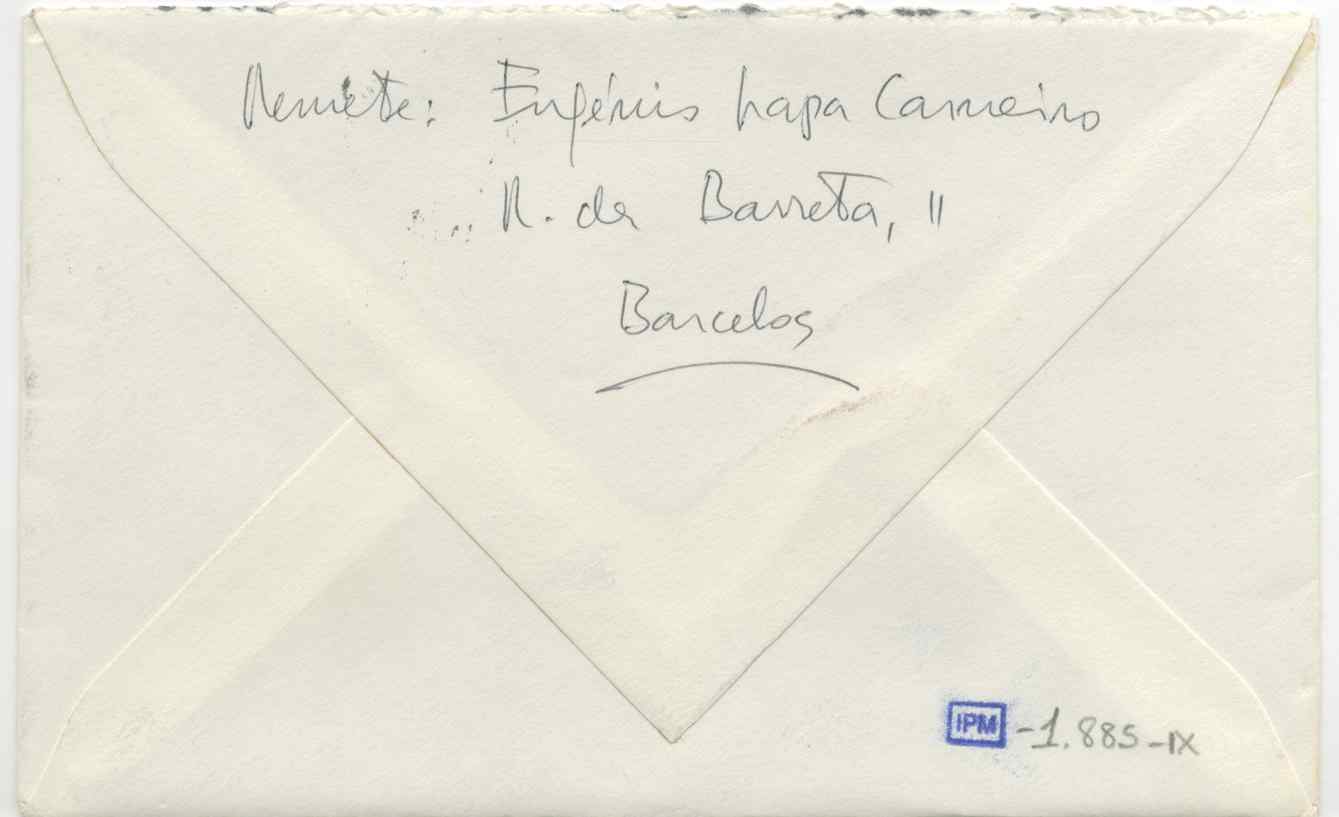 Remete: Eugénio Lapa Carneiro
R. da Barreta, 11
Barcelos
IPM -1.885-IX